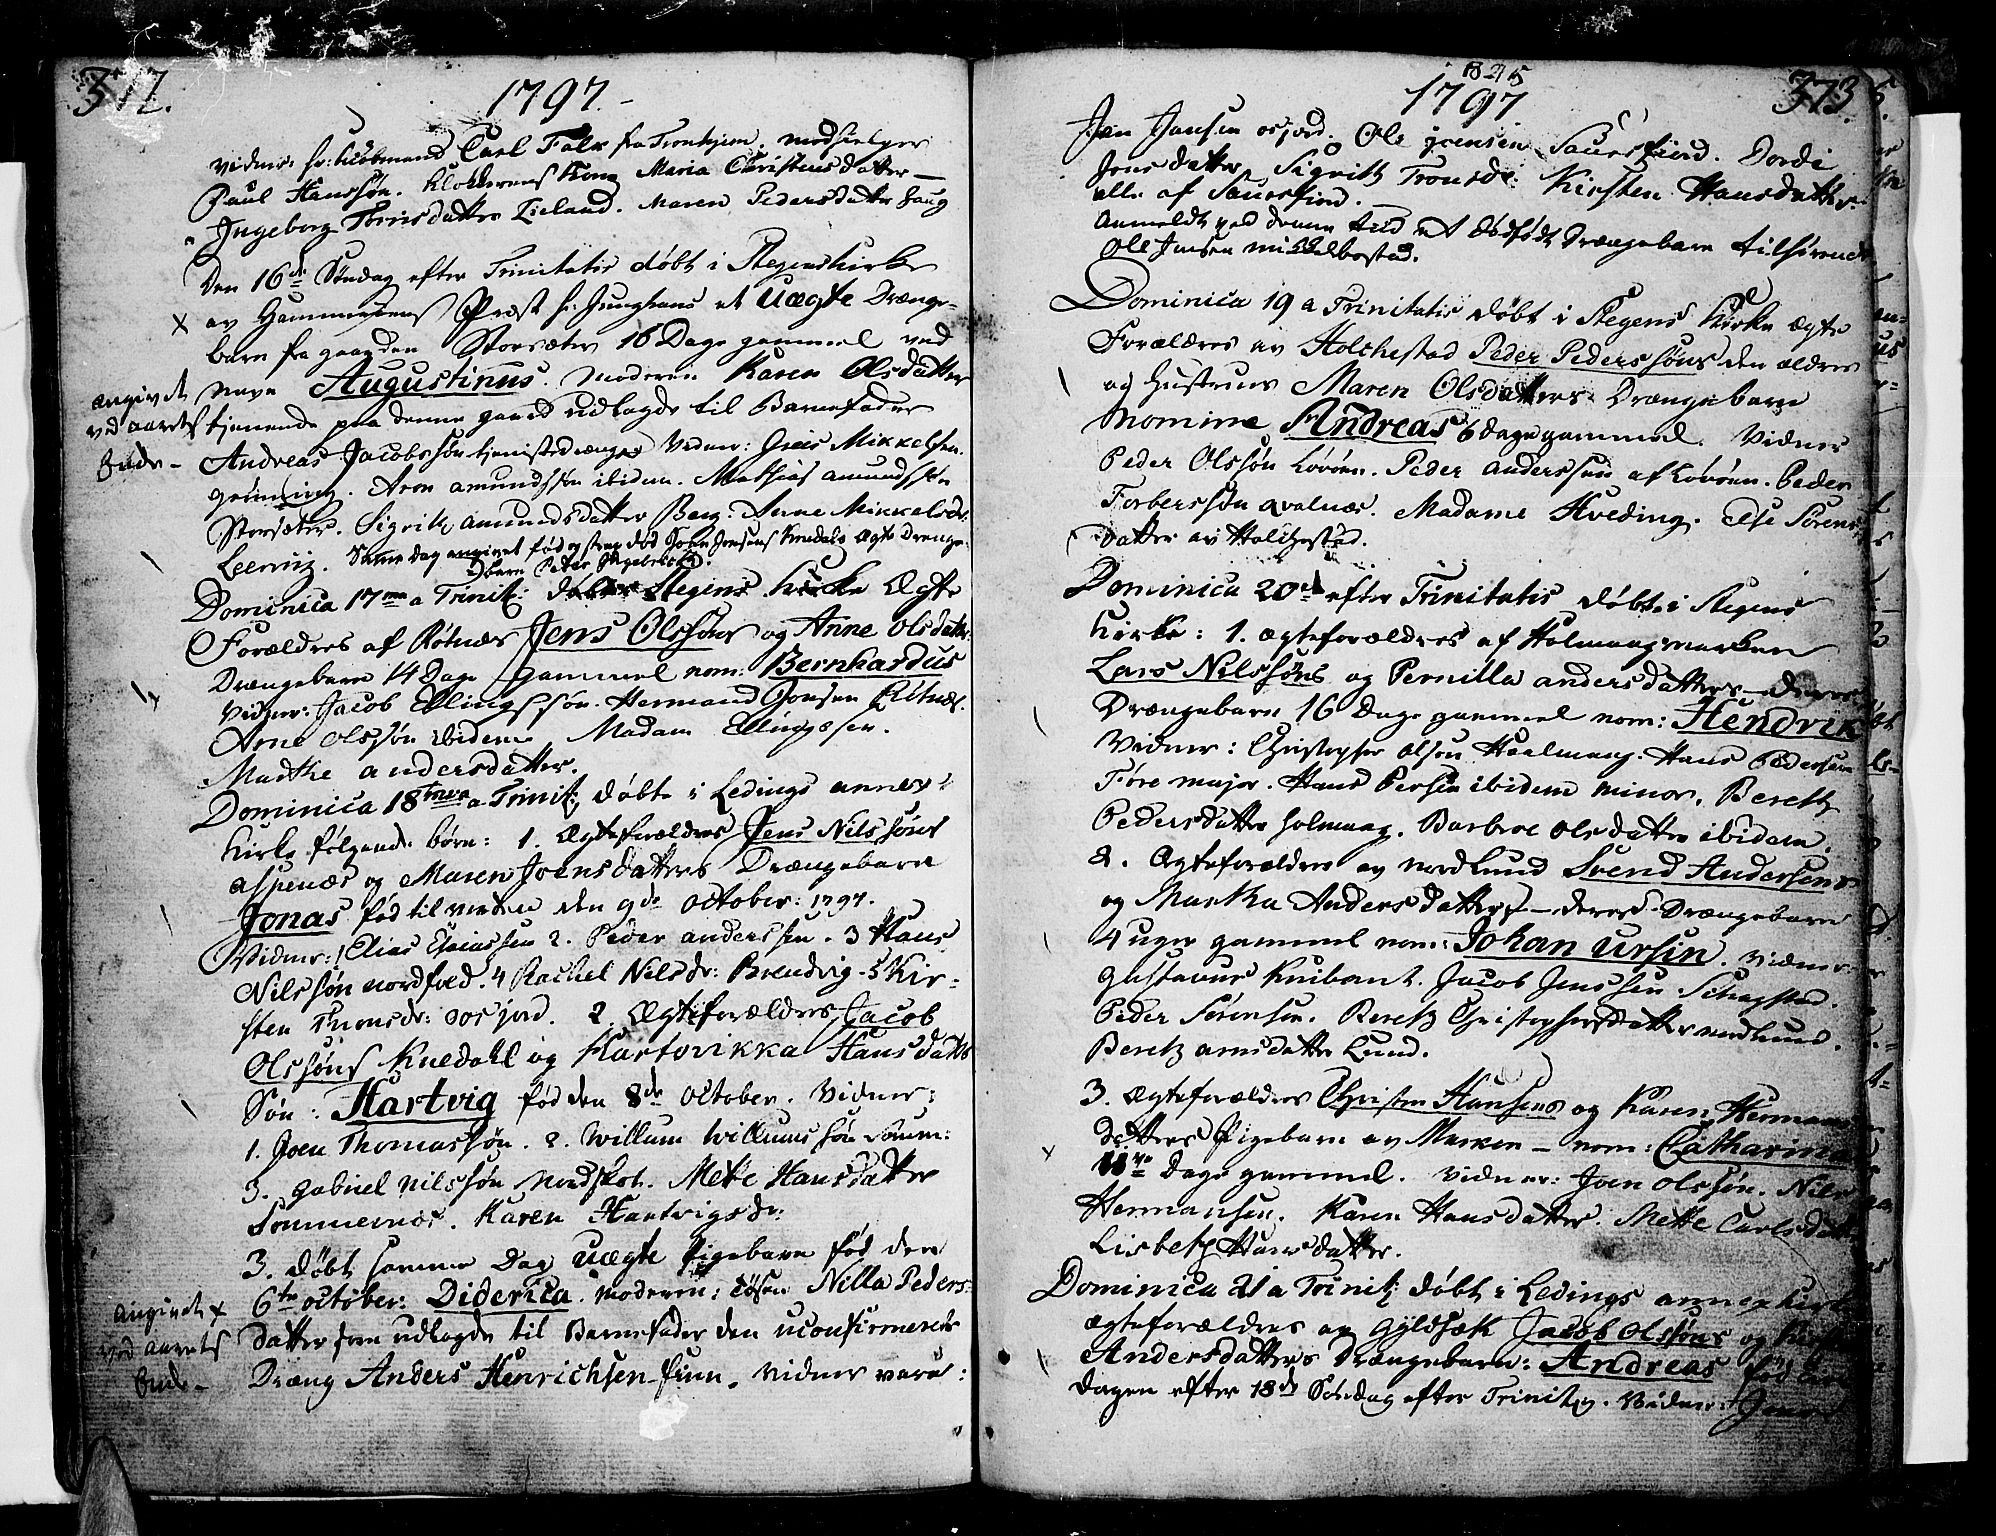 372.
1797.
Vidner: hr: Kiøbmand Carl Falx fra Tronhjem. Medhielper
Paul Hanssøn. Klokkerens Kone Maria Christensdatter
Ingeborg Tønisdatter Zieland. Maren Pedersdatter Haug
Den 16de Søndag efter Trinitatis døbt i Stegens Kirke
av Hammerøens Præst hr: Junghans et Uægte Drænge-
barn fra gaarden Storsæter 16 Dage gammel ved
navn Augustinus. Moderen Karen Olsdatter
tjenende paa denne gaard udlagde til Barnefader
Andreas Jacobssøn tjenistedræng. Vidner: Greis Mikkelsen
grønning. Aron Amundssøn ibidem. Mathias Amundssøn
Storsæter. Sigrith Amundsdatter Berg. Anne Mikkelsdr
Leervig. Samme dag angivet fød og strax død John Jonsens Knedals Ægte Drenge-
barn Peter Ingebrickt.
angivet
ved aarets
Ende
Dominica 17ma a Trinit: døbt i Stegens Kirke Ægte
Forældres af Røtnæs Jens Olssøns og Anne Olsdatters
Drængebarn 14 Dage gammel nom: Bernhardus
Vidner: Jacob Ellingssøn. Hermand Jonsen Røtnæs.
Arne Olssøn ibidem Madam Ellingsen.
Marthe Andersdatter.
Dominica 18tma a Trinit: døbte i Ledings annex
Kirke følgende børn: 1. Ægteforældres Jens Nilssøns
Aspenæs og Maren Joensdatters Drængebarn
Jonas fød til verden den 9de october: 1797.
Vidner: 1 Elias Eliassen 2. Peder Anderssen. 3 Hans
Nilssøn nordfold. 4 Rachel Nilsdr: Brendvig. 5 Kir-
sten Thomsdr: Oosjord. 2 Ægteforældres Jacob
Olssøns Knedahl og Hartvikka Hansdatters
Søn: Hartvig fød den 8de October. Vidner:
1. Joen Thomassøn. 2. Willum Willumssøn Somm:
3. Gabriel Nilssøn Nordskot. Mette Hansdatter
Sommernæs. Karen Hartvigsdr:
3. døbt samme Dag Uægte Pigebarn fød den
6te october: Diderica. Moderen: Tøsen Nilla Peders-
datter som udlagde til Barnefader den uconfirmerede
Dræng Anders Henrichsen. Vidner vare:
Angivet
ved aarets
Ende
373.
1825
1797
Jan Jansen osjord. Ole Jensen Sauesfjord. Dordi
Jonsdatter, Sigrith Tronsdr. Kirsten Hansdatter
alle af Sauesfjord.
Anmeldt ved denne tid et dødfødt Drængebarn tilhørende
Ole Jensen Mikkelbostad.
Dominica 19 a Trinitatis døbt i Stegens Kirke Ægte
Forældres av Holckestad Peder Pederssøns den ældres
og Hustrues Maren Olsdatters Drængebarn
nomine Andreas 6 dage gammel. Vidner
Peder Olssøn Lovøen. Peder Anderssøn af Lovøen. Peder
Torberssøn qvalnæs. Madame Hveding. Else Sørens-
datter av Holchestad.
Dominica 20de efter Trinitatis døbte i Stegens
Kirke: 1. Ægteforældres af Holmaagmarken
Lars Nilssøns og Pernilla Andersdatters deres
Drængebarn 16 Dage gammel nom: Hendrik
Vidner: Christopher Olsøn Haalmaag. Hans Pedersen
Føre major. Hans Persen ibidem minor. Bereth
Pedersdatter Holmaag. Barbroe Olsdatter ibidem.
2. Ægteforældres av Nordlund Svend Andersens
og Martha Andersdatters - deres Drængebarn
4 uger gammel nom: Johan Ursin. Vidner:
Gustavus Knibant. Jacob Jenssen Schagstad.
Peder Sørensen. Bereth Christophersdatter Nordlund.
Bereth Arnsdatter Lund.
3. Ægteforældres Christen Hansens og Karen Hermans
datters Pigebarn av Marken - nom: Catharina
Dage gammel. Vidner: Joen Olssøn. Nils
Hermansen. Karen Hansdatter. Mette Carlsdatter
Lisbeth Hansdatter.
Dominica 21 a Trinit: døbt i Ledings annexkirke
Ægteforældres av Gyldsæk Jacob Olssøns og
Andersdatters Drængebarn: Andreas fød
dagen efter 18de Søndag efter Trinit:. Vidner: